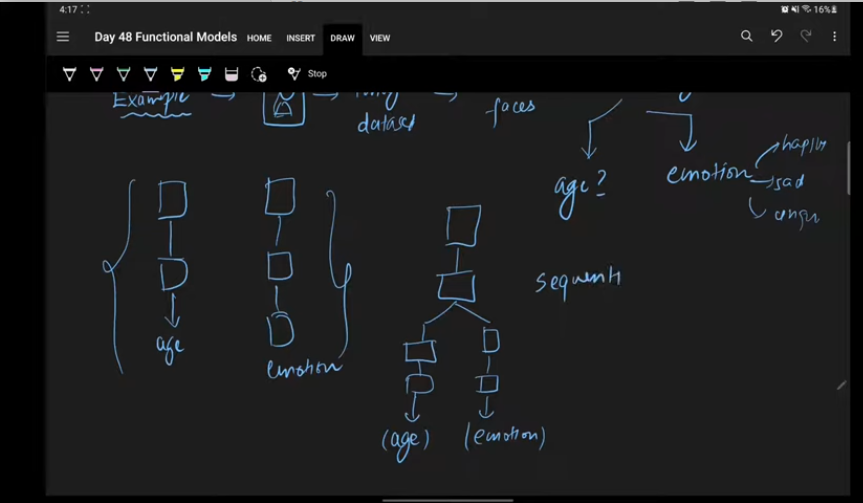 4:17
16%
Day 48 Functional Models HOME INSERT DRAW VIEW
Stop
Example
dataset
faces
age?
emotion
happy
sad
age
emotion
sequenti
(age) (emotion)